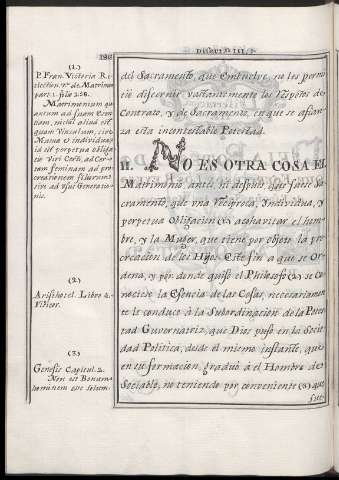 DISCURSO III.
(1.)
P. Fran. Victoria Re-
lection 7.ª de Matrimo.
part. 1. folio 258.
Matrimonium qu-
antum ad suam Essen-
tiam, nichil aliud est
quam Vinculum, sive
Mutua et individua,
id est perpetua obliga-
tio Viri Certi, ad Cer-
tam feminam ad pro-
creationem filiorum
sive ad usus Generatio-
nis.
(2.)
Aristhotel. Libro 2.
(3.)
Genesis Capitul. 2.
Non est Bonum
hominem esse solum.
del Sacramento, que Embuelve, no les permi-
tió discernir vastantemente los Respetos de
Contrato, y de Sacramento, en que se afian-
za esta incontestable Potestad.
11. NO ES OTRA COSA EL
Matrimonio, antes, ni despues de ser Sa-
cramento, que una Reciproca, Individua, y
perpetua Obligacion (1) a cohavitar el hom-
bre, y la Muger, que tiene por objeto la pro-
creacion de los Hijos. Este fin a que se Or-
dena, y por donde quiso el Philosofo (2) se co-
nociese la Esencia de las Cosas, necesariamen-
te le conduce à la Subordinacion de la Potes-
tad Guvernatriz, que Dios puso en la Socie-
dad Politica, desde el mismo instante, que
en su formacion, graduó à el Hombre de
Sociable, no teniendo por conveniente (3) que